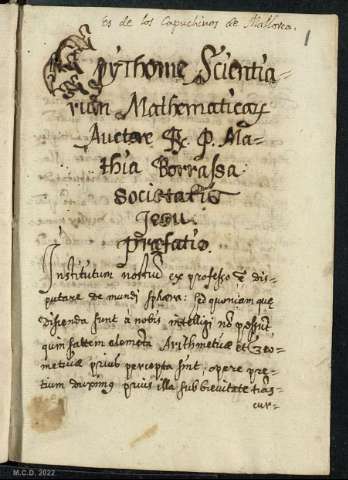 Es de los Capuchinos de Mallorca.
1
Epythome Scientia-
rum Mathematicarũ
Auctore R. P. Ma-
thia Borrassa
Societatis
Jesu
Præfatio.
Institutum nostrũ ex professo ẽ dis-
putare de mundi sphæra: sed quoniam quę
disenda sunt à nobis intelligi nõ possũt
quin saltem elemẽta Arithmeticæ et Geo-
metricæ prius percepta sint, opere pre-
tium duximus prius illa sub brevitate trãs
cur-
M.C.D. 2022